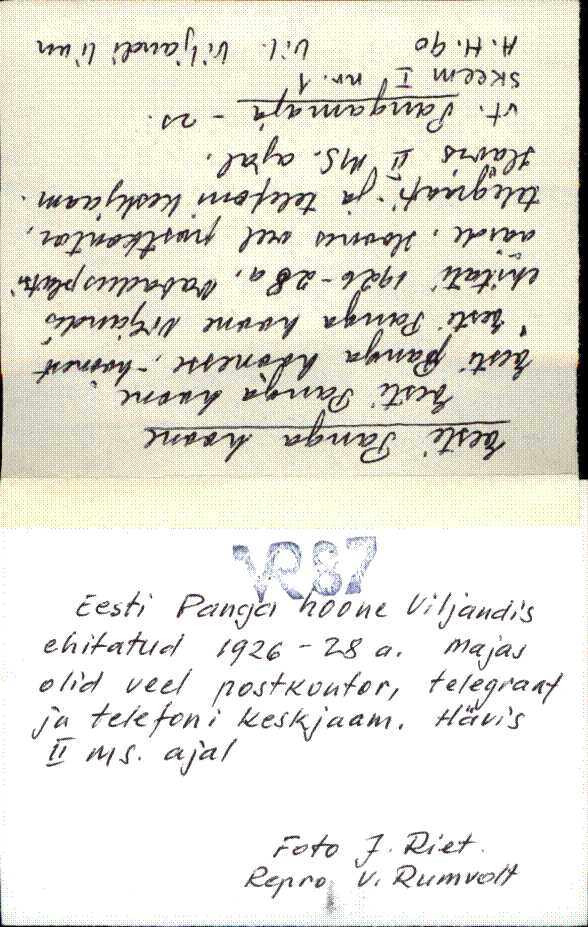 Eesti Panga hoone
Eesti Panga hoone
Eesti Panga hoonesse, -hoonest
Eesti Panga hoone Viljandis
ehitati 1926-28 a, Vabadusplatsi
äärde. Hoones veel postkontor,
telegraaf- ja telefoni keskjaam.
Hävis II MS. ajal.
vt. Pangamaja - 25.
skeem I nr. 1
A.H. 90 Vil. Viljandi linn
VR 87
Eesti Panga hoone Viljandis
ehitatud 1926-28 a. Majas
olid veel postkontor, telegraaf
ja telefoni keskjaam. Hävis
II MS. ajal
Foto J. Riet.
Repro V. Rumvolt